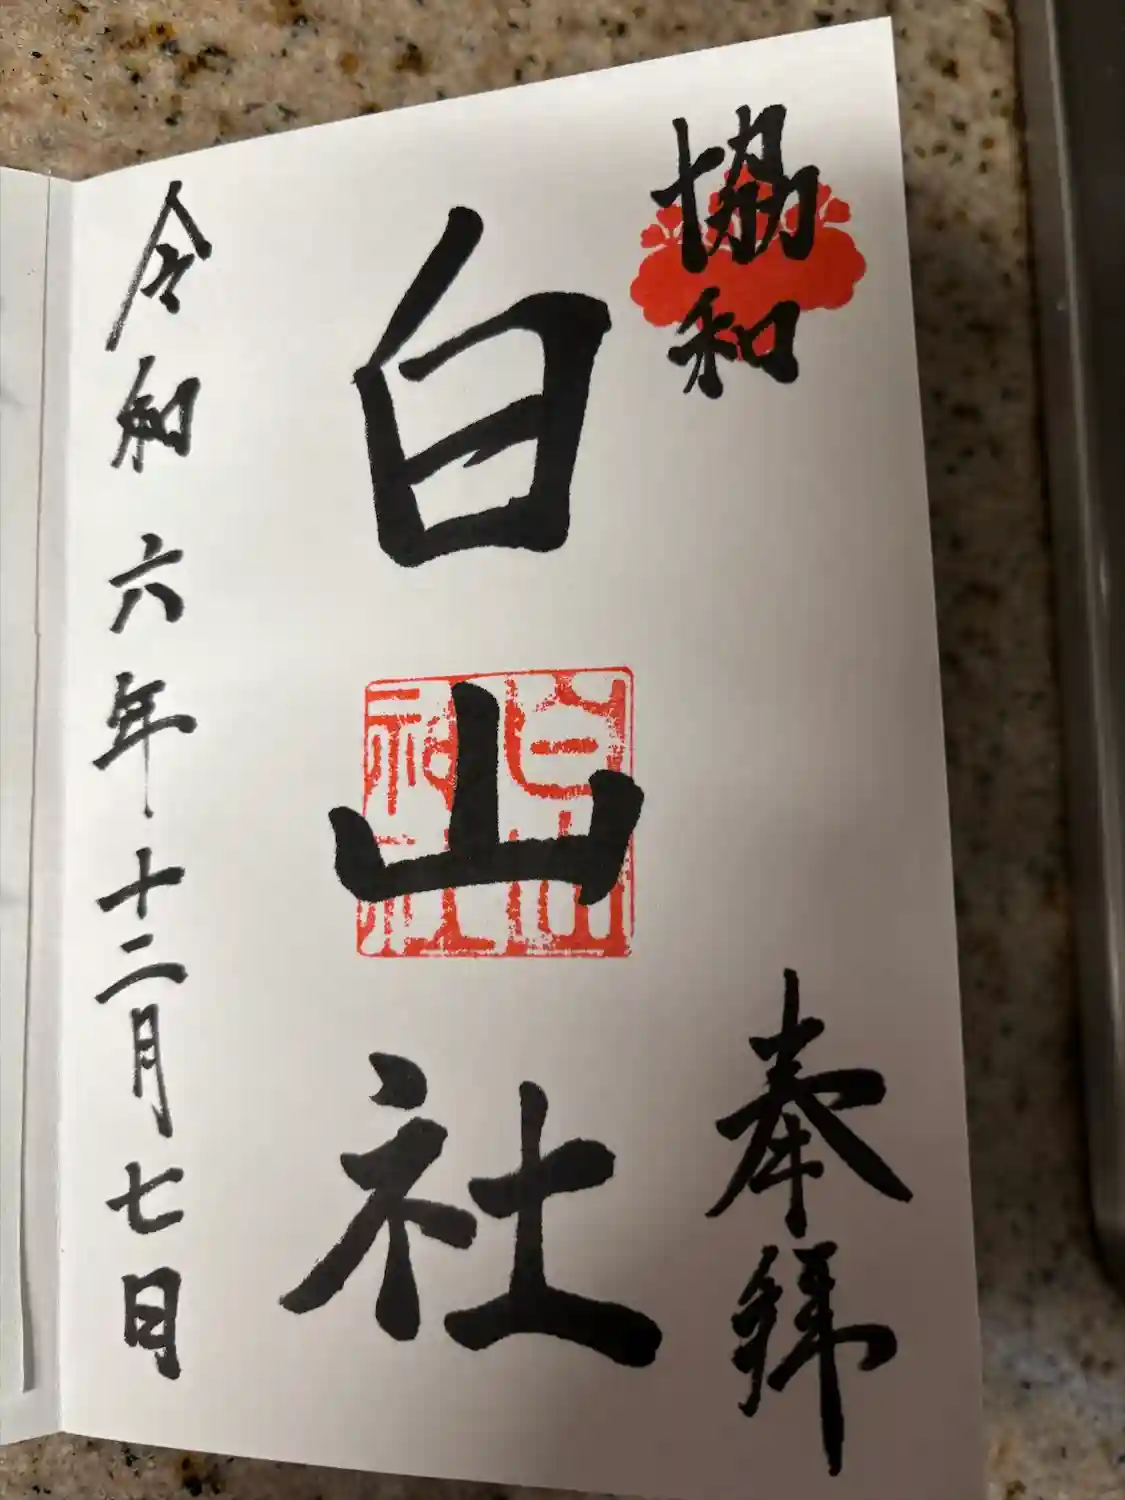 協和
奉拜
白山社
白山神社
令和六年十二月七日